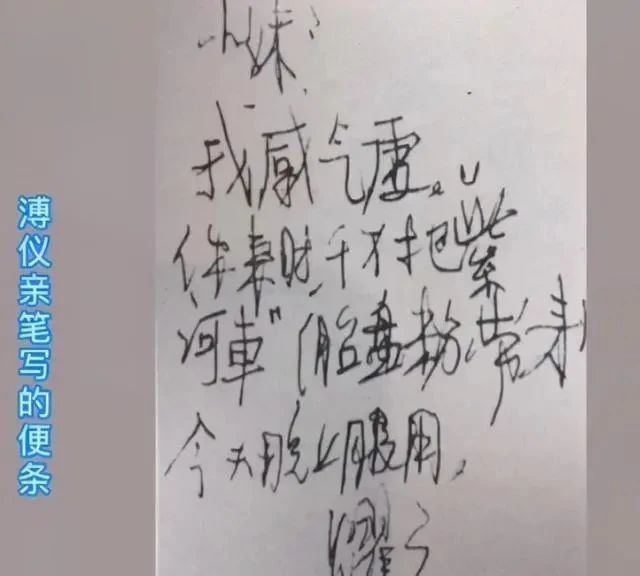 溥仪亲笔写的便条
小妹：
我感气虚。
你来时，千万把"紫
河車"（胎盘粉）带来
今天晚上服用，
耀之